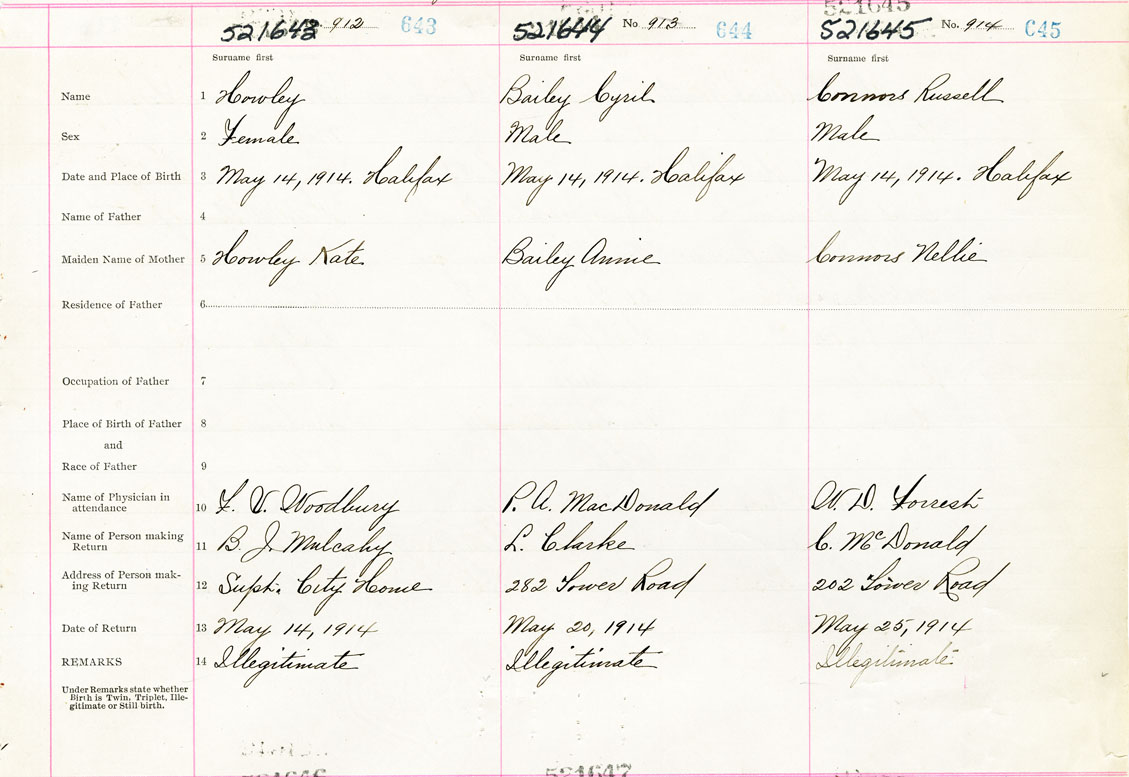 521645
521643 912 643 521644 No 913 644 521645 No. 914 645
Surname first Surname first Surname first
Name 1 Howley Bailey Cyril Connors Russell
Sex 2 Female Male Male
Date and Place of Birth 3 May 14, 1914. Halifax May 14, 1914. Halifax May 14, 1914. Halifax
Name of Father 4
Maiden Name of Mother 5 Howley Kate Bailey Annie Connors Nellie
Residence of Father 6
Occupation of Father 7
Place of Birth of Father 8
and
Race of Father 9
Name of Physician in
attendance 10 F. V. Woodbury P. A. MacDonald W. D. Forrest
Name of Person making
Return 11 B. J. Mulcahy L. Clarke C. McDonald
Address of Person mak-
ing Return 12 Supt. City Home 282 Tower Road 202 Tower Road
Date of Return 13 May 14, 1914 May 20, 1914 May 25, 1914
REMARKS 14 Illegitimate Illegitimate Illegitimate
Under Remarks state whether
Birth is Twin, Triplet, Ille-
gitimate or Still birth.
521646 521647